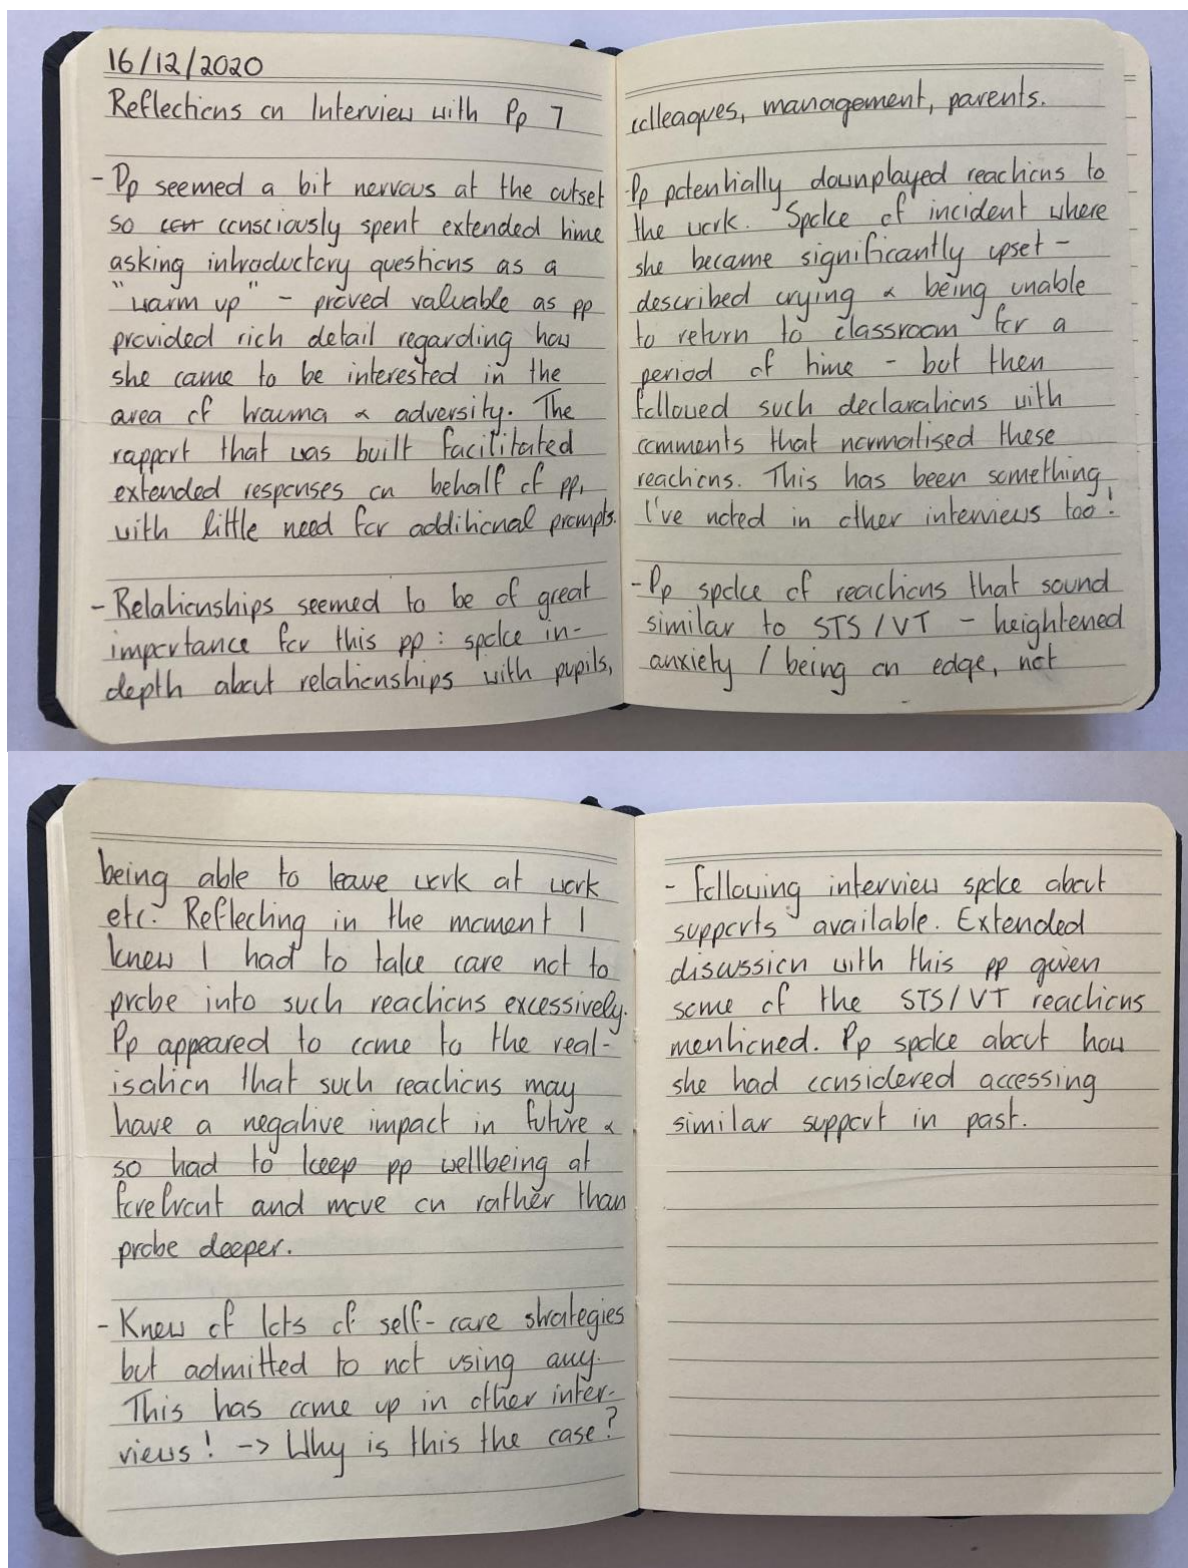 16/12/2020
Reflections on Interview with Pp 7
- Pp seemed a bit nervous at the outset
so consciously spent extended time
asking introductory questions as a
"warm up" - proved valuable as pp
provided rich detail regarding how
she came to be interested in the
area of trauma & adversity. The
rapport that was built facilitated
extended responses on behalf of pp,
with little need for additional prompts.
- Relationships seemed to be of great
importance for this pp: spoke in-
depth about relationships with pupils,
colleagues, management, parents.
- Pp potentially downplayed reactions to
the work. Spoke of incident where
she became significantly upset -
described crying & being unable
to return to classroom for a
period of time - but then
followed such declarations with
comments that normalised these
reactions. This has been something
I've noted in other interviews too!
- Pp spoke of reactions that sound
similar to STS/VT - heightened
anxiety / being on edge, not
being able to leave work at work
etc. Reflecting in the moment I
knew I had to take care not to
probe into such reactions excessively.
Pp appeared to come to the real-
isation that such reactions may
have a negative impact in future &
so had to keep pp wellbeing at
forefront and move on rather than
probe deeper.
- Knew of lots of self-care strategies
but admitted to not using any.
This has come up in other inter-
views! -> Why is this the case?
- Following interview spoke about
supports available. Extended
discussion with this pp given
some of the STS/VT reactions
mentioned. Pp spoke about how
she had considered accessing
similar support in past.